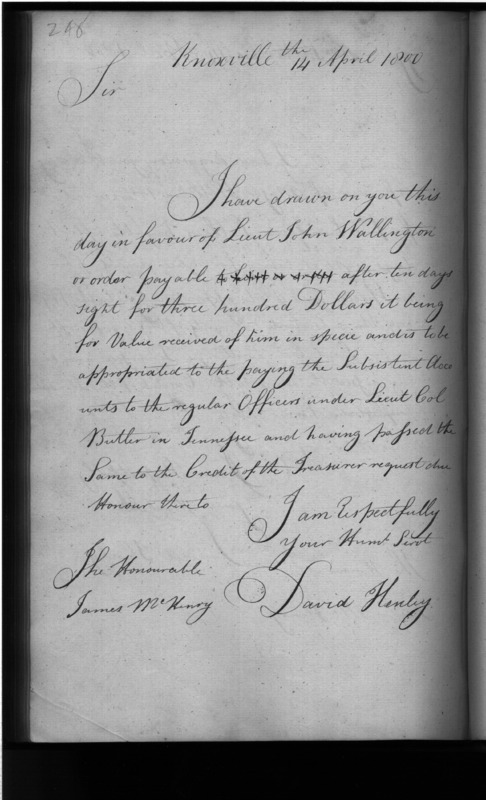 246
Knoxville 14th April 1800
Sir
I have drawn on you this
day in favour of Lieut John Wallington
or order payable after ten days
sight for three hundred Dollars it being
for Value received of him in specie and is to be
appropriated to the paying the Subsistent Acco
unts to the regular Officers under Lieut Col
Butler in Tennessee and having passed the
Same to the Credit of the Treasurer request due
Honour thereto
I am Respectfully
your Humt Servt
The Honourable
James McHenry
David Henley